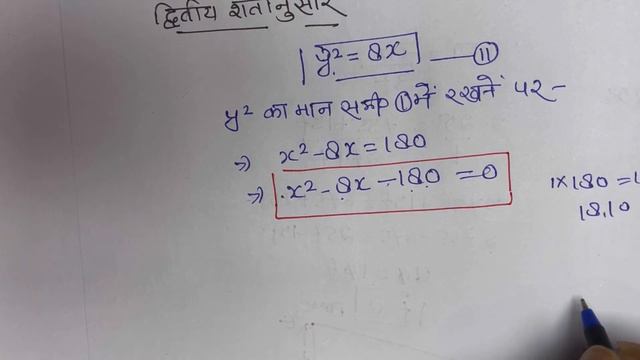 द्वितीय शर्तानुसार
y² = 8x —⑪
y² का मान समी० ① में रखनें पर-
⇒ x² - 8x = 180
⇒ x² - 8x - 180 = 0
1 × 180 = 1
18,10